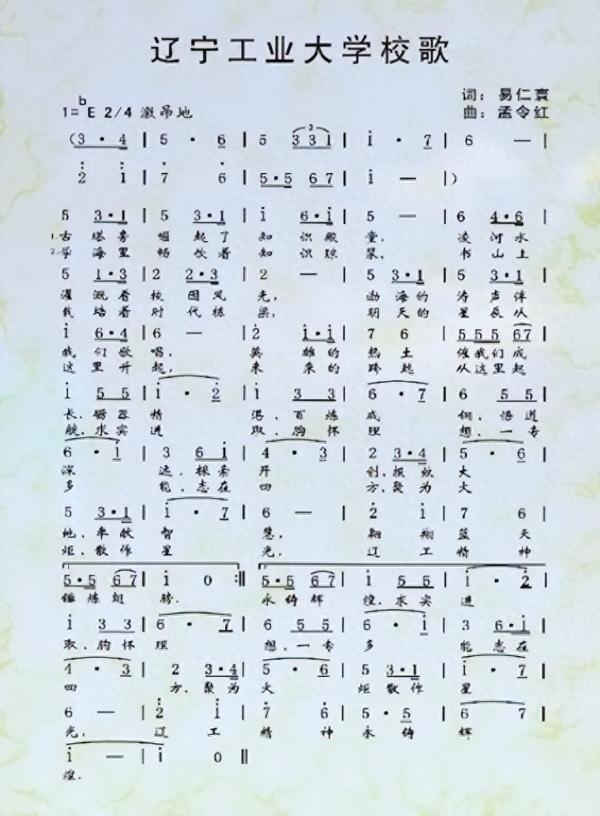 辽宁工业大学校歌
词：易仁寰
1=ᵇE 2/4 激昂地
曲：孟令红
(3·4 | 5 · 6 | 5 3 3 1 | i · 7 | 6 — |
2 i | 7 6 | 5·5 6 7 | i — |)
5 3·1 | 5 3·1 | i 6·i | 5 — | 6 4·6 |
1.古塔旁 崛起了 知识殿堂， 凌河水
2.学海里 畅饮着 知识琼浆， 书山上
5 1·3 | 2 2·3 | 2 — | 5 3·1 | 5 3·1 |
灌溉着 校园风光， 渤海的 涛声伴
栽培着 时代栋梁， 明天的 星辰从
i 6·4 | 6 — | 2 i·i | 7 6 | 5 5 5 6 7 |
我们歌唱， 英雄的 热土 催我们成
这里开起， 未来的 跨越 从这里起
i 5 5 | i · 2 | i 3 3 | 6 · 7 | 6 5 5 |
长，砺器精 湛，百炼成 钢，悟道
航，求实进 取，胸怀理 想，一专
6 · i | 3 6 i | 4 · 3 | 2 3·4 | 5 · 6 |
深 远，探索开 创，报效大
多 能，志在四 方，聚为大
5 3·1 | i · 7 | 6 — | 2 i | 7 6 |
地，奉献智 慧， 翱翔 蓝天
炬，散作星 光， 辽工 精神
5·5 6 7 | i 0 :‖ 5·5 6 7 | i 5 5 | i · 2 |
锤炼翅膀。 永铸辉煌，求实进
i 3 3 | 6 · 7 | 6 5 5 | 6 · i | 3 6 i |
取，胸怀理 想，一专多 能志在
4 · 3 | 2 3·4 | 5 · 6 | 5 3·1 | i · 7 |
四 方，聚为大 炬散作星
6 — | 2 i | 7 6 | 5 · 5 | 6 7 |
光， 辽工 精神 永铸 辉
i — | i — | i 0 ‖
煌。